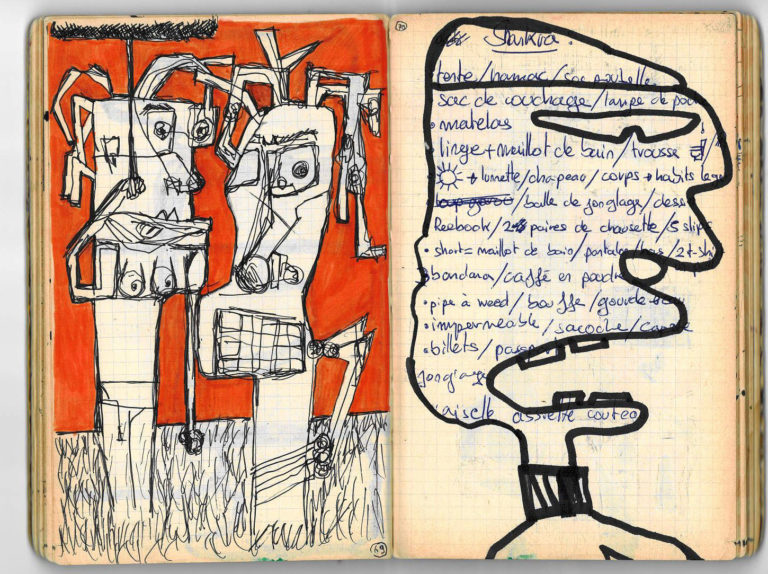 70
Shankra.
tente / hamac / sac poubelle
sac de couchage / lampe de poc
• matelas
linge + maillot de bain / trousse
lunette / chapeau / corps + habits
/ balle de jonglage / dess
Reebook / 2 paires de chausette / 5 slip
• short = maillot de bain / pantalon / / 2 t-shi
• bandana / caffé en poudre
• pipe à weed / bouffe / gourde
• impermeable / sacoche / cap
• billets / passe
jongla
aiselle assiette coutea
69